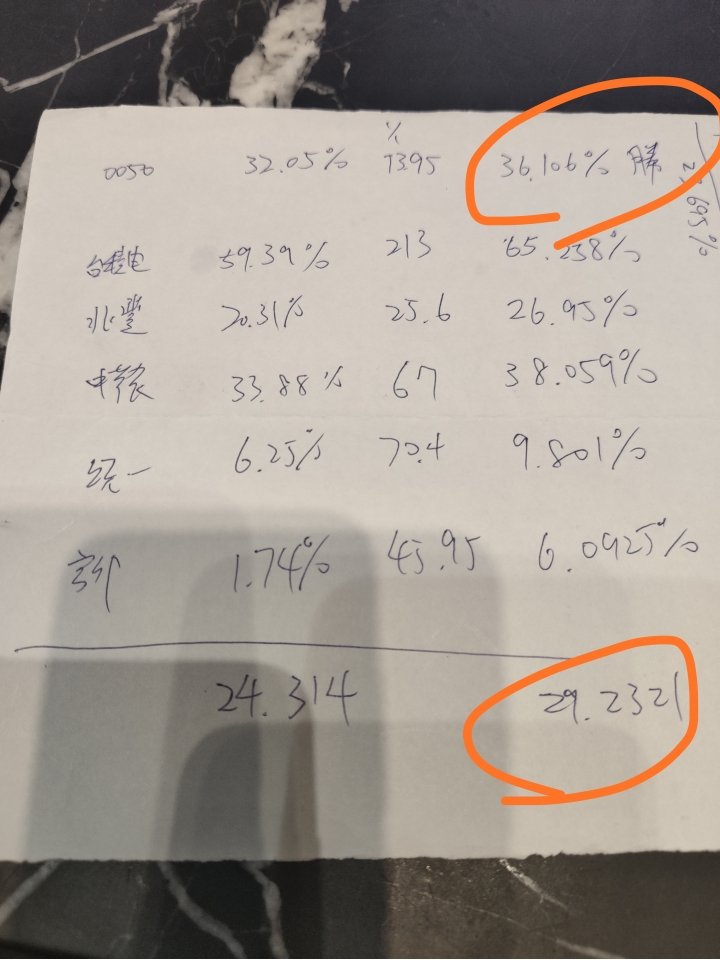 %
0050 32.05% 1395 36.106% 勝
台積電 59.39% 213 65.258%
北豐 20.31% 25.6 26.95%
中華農 33.88% 67 38.059%
統一 6.25% 72.4 9.801%
1.74% 45.95 6.0925%
24.314 29.2321